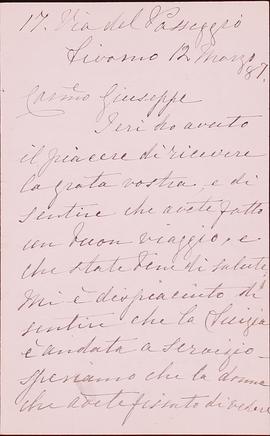 17. Via del Passeggio
Livorno 12 Marzo
87.
Carmo Giuseppe
Ieri ho avuto
il piacere di ricevere
la grata vostra, e di
sentire che avete fatto
un buon viaggio, e
che state bene di salute,
Mi è dispiaciuto di
sentire che la Luigia
è andata a servizio -
speriamo che la donna
che avete fissato di vedere